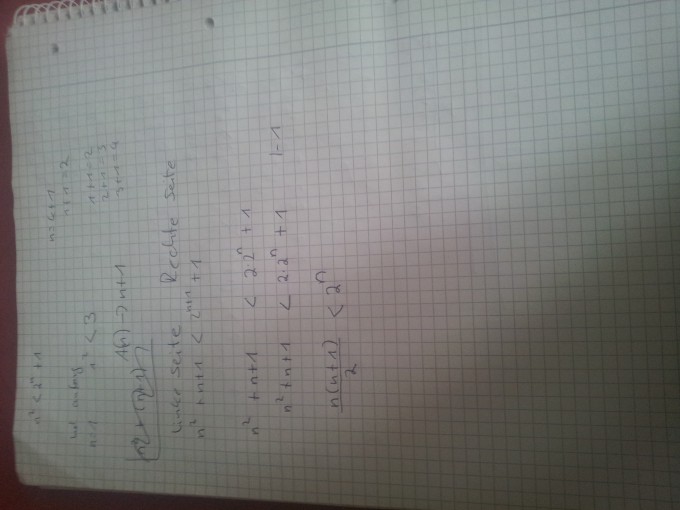 n² < 2ⁿ + 1
n=k+1
n+1=2
Ind anfang
n=1 1² < 3
1+1=2
2+1=3
3+1=4
A(n) → n+1
Linke Seite Rechte Seite
n² + n+1 < 2ⁿ⁺¹ + 1
n² + n+1 < 2·2ⁿ + 1
n² + n+1 < 2·2ⁿ + 1 |-1
n(n+1)/2 < 2ⁿ